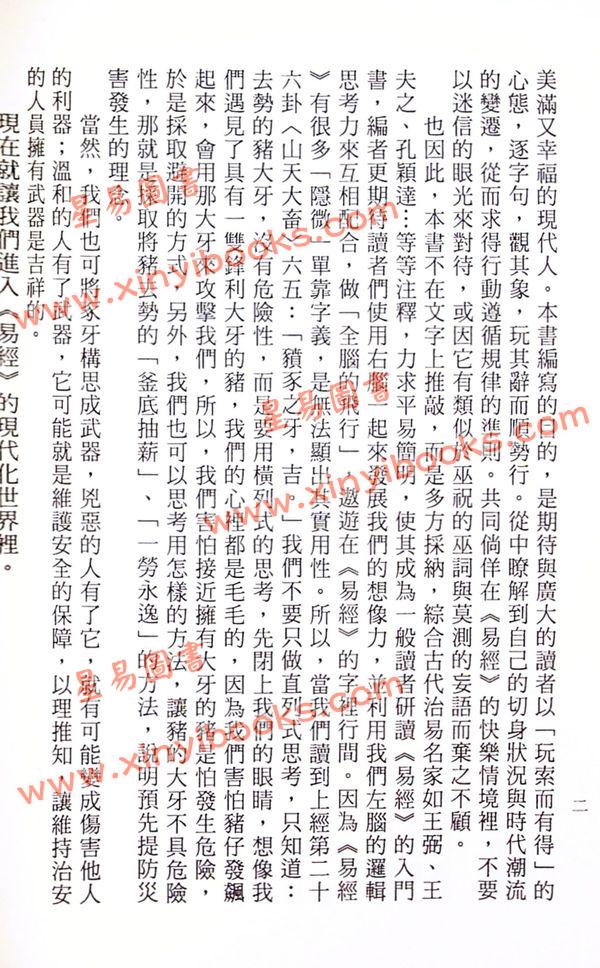 二
美滿又幸福的現代人。本書編寫的目的，是期待與廣大的讀者以「玩索而有得」的
心態，逐字句，觀其象，玩其辭而順勢行。從中瞭解到自己的切身狀況與時代潮流
的變遷，從而求得行動遵循規律的準則。共同倘佯在《易經》的快樂情境裡，不要
以迷信的眼光來對待，或因它有類似於巫祝的巫詞與莫測的妄語而棄之不顧。
也因此，本書不在文字上推敲，而是多方採納，綜合古代治易名家如王弼、王
夫之、孔穎達…等等注釋，力求平易簡明，使其成為一般讀者研讀《易經》的入門
書，編者更期待讀者們使用右腦一起來發展我們的想像力，並利用我們左腦的邏輯
思考力來互相配合，做「全腦的飛行」遨遊在《易經》的字裡行間。因為《易經
》有很多「隱微」單靠字義，是無法顯出其實用性。所以，當我們讀到上經第二十
六卦〈山天大畜〉六五：「豶豕之牙，吉。」我們不要只做直列式思考，只知道：
去勢的豬大牙，沒有危險性，而是要用橫列式的思考，先閉上我們的眼睛，想像我
們遇見了具有一雙鋒利大牙的豬，我們的心裡都是毛毛的，因為我們害怕豬仔發飆
起來，會用那大牙來攻擊我們，所以，我們害怕接近擁有大牙的豬是怕發生危險，
於是採取避開的方式，另外，我們也可以思考用怎樣的方法，讓豬的大牙不具危險
性，那就是採取將豬去勢的「釜底抽薪」、「一勞永逸」的方法，說明預先提防災
害發生的理念。
當然，我們也可將豕牙構思成武器，兇惡的人有了它，就有可能變成傷害他人
的利器；溫和的人有了武器，它可能就是維護安全的保障，以理推知，讓維持治安
的人員擁有武器是吉祥的。
現在就讓我們進入《易經》的現代化世界裡。
星易圖書
www.xinyibooks.com
星易圖書
www.xinyibooks.com
星易圖書
www.xinyibooks.com